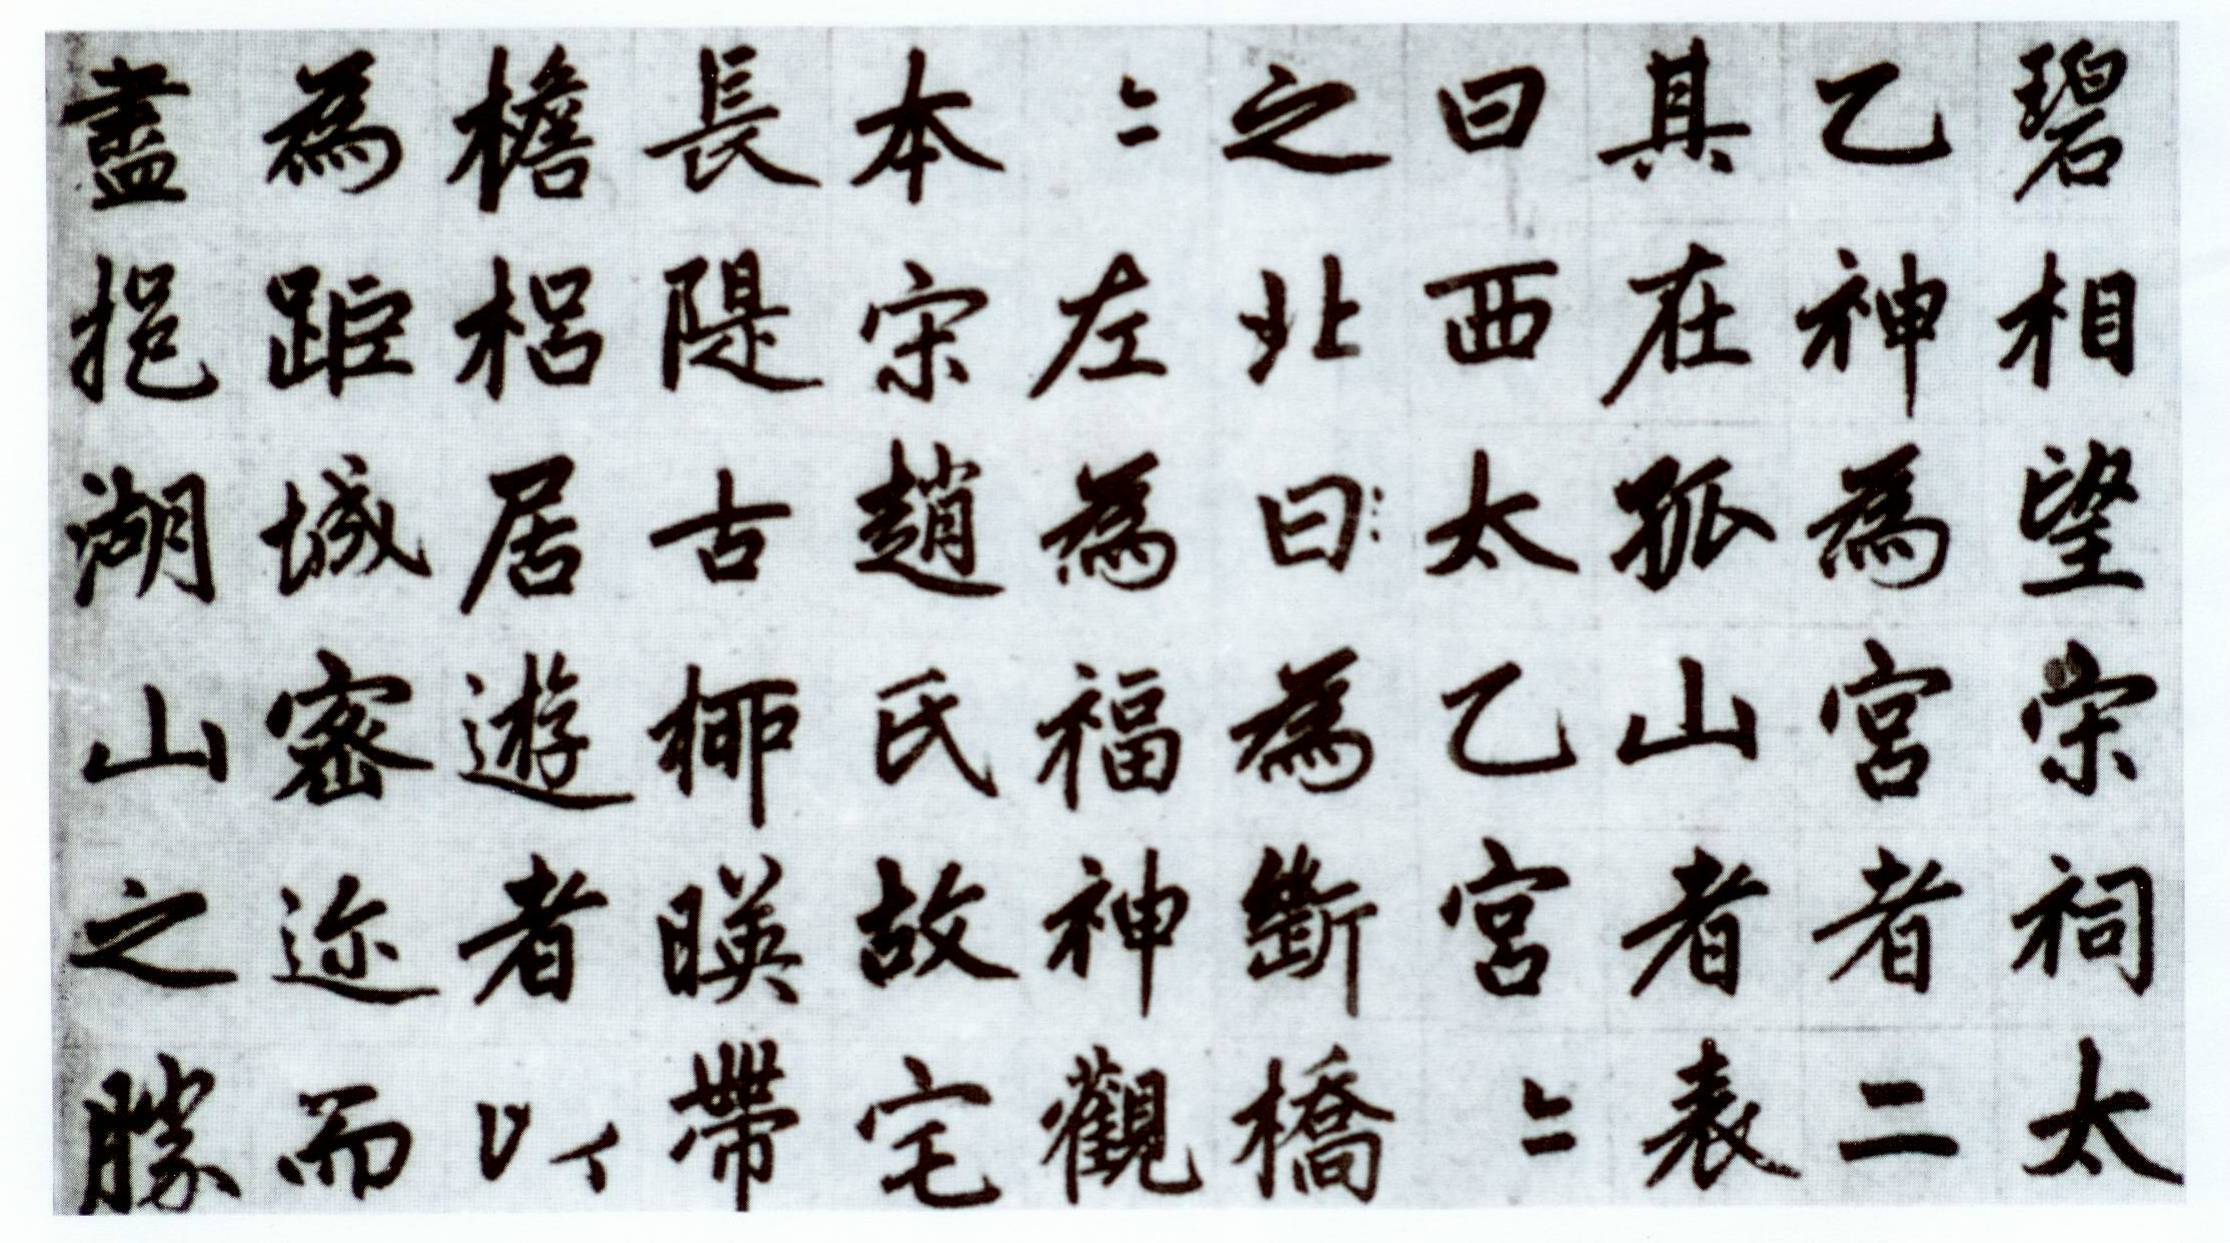 碧相望宋祠太
乙神為宮者二
其在孤山者表
曰西太乙宮〻
之北曰為斷橋
〻左為福神觀
本宋趙氏故宅
長隄古柳暎帶
檐梠居遊者以
為距城密迩而
盡挹湖山之勝